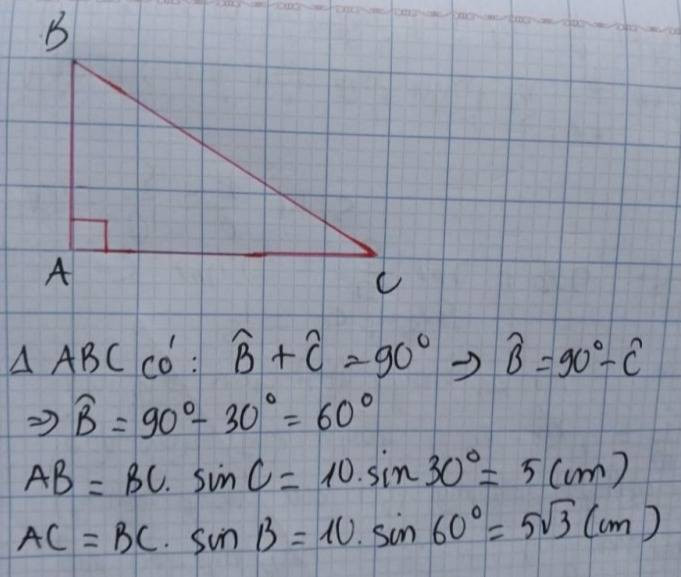 B
A
C
Δ ABC có: B̂ + Ĉ = 90° => B̂ = 90° - Ĉ
=> B̂ = 90° - 30° = 60°
AB = BC. sin C = 10. sin 30° = 5 (cm)
AC = BC. sin B = 10. sin 60° = 5√3 (cm)